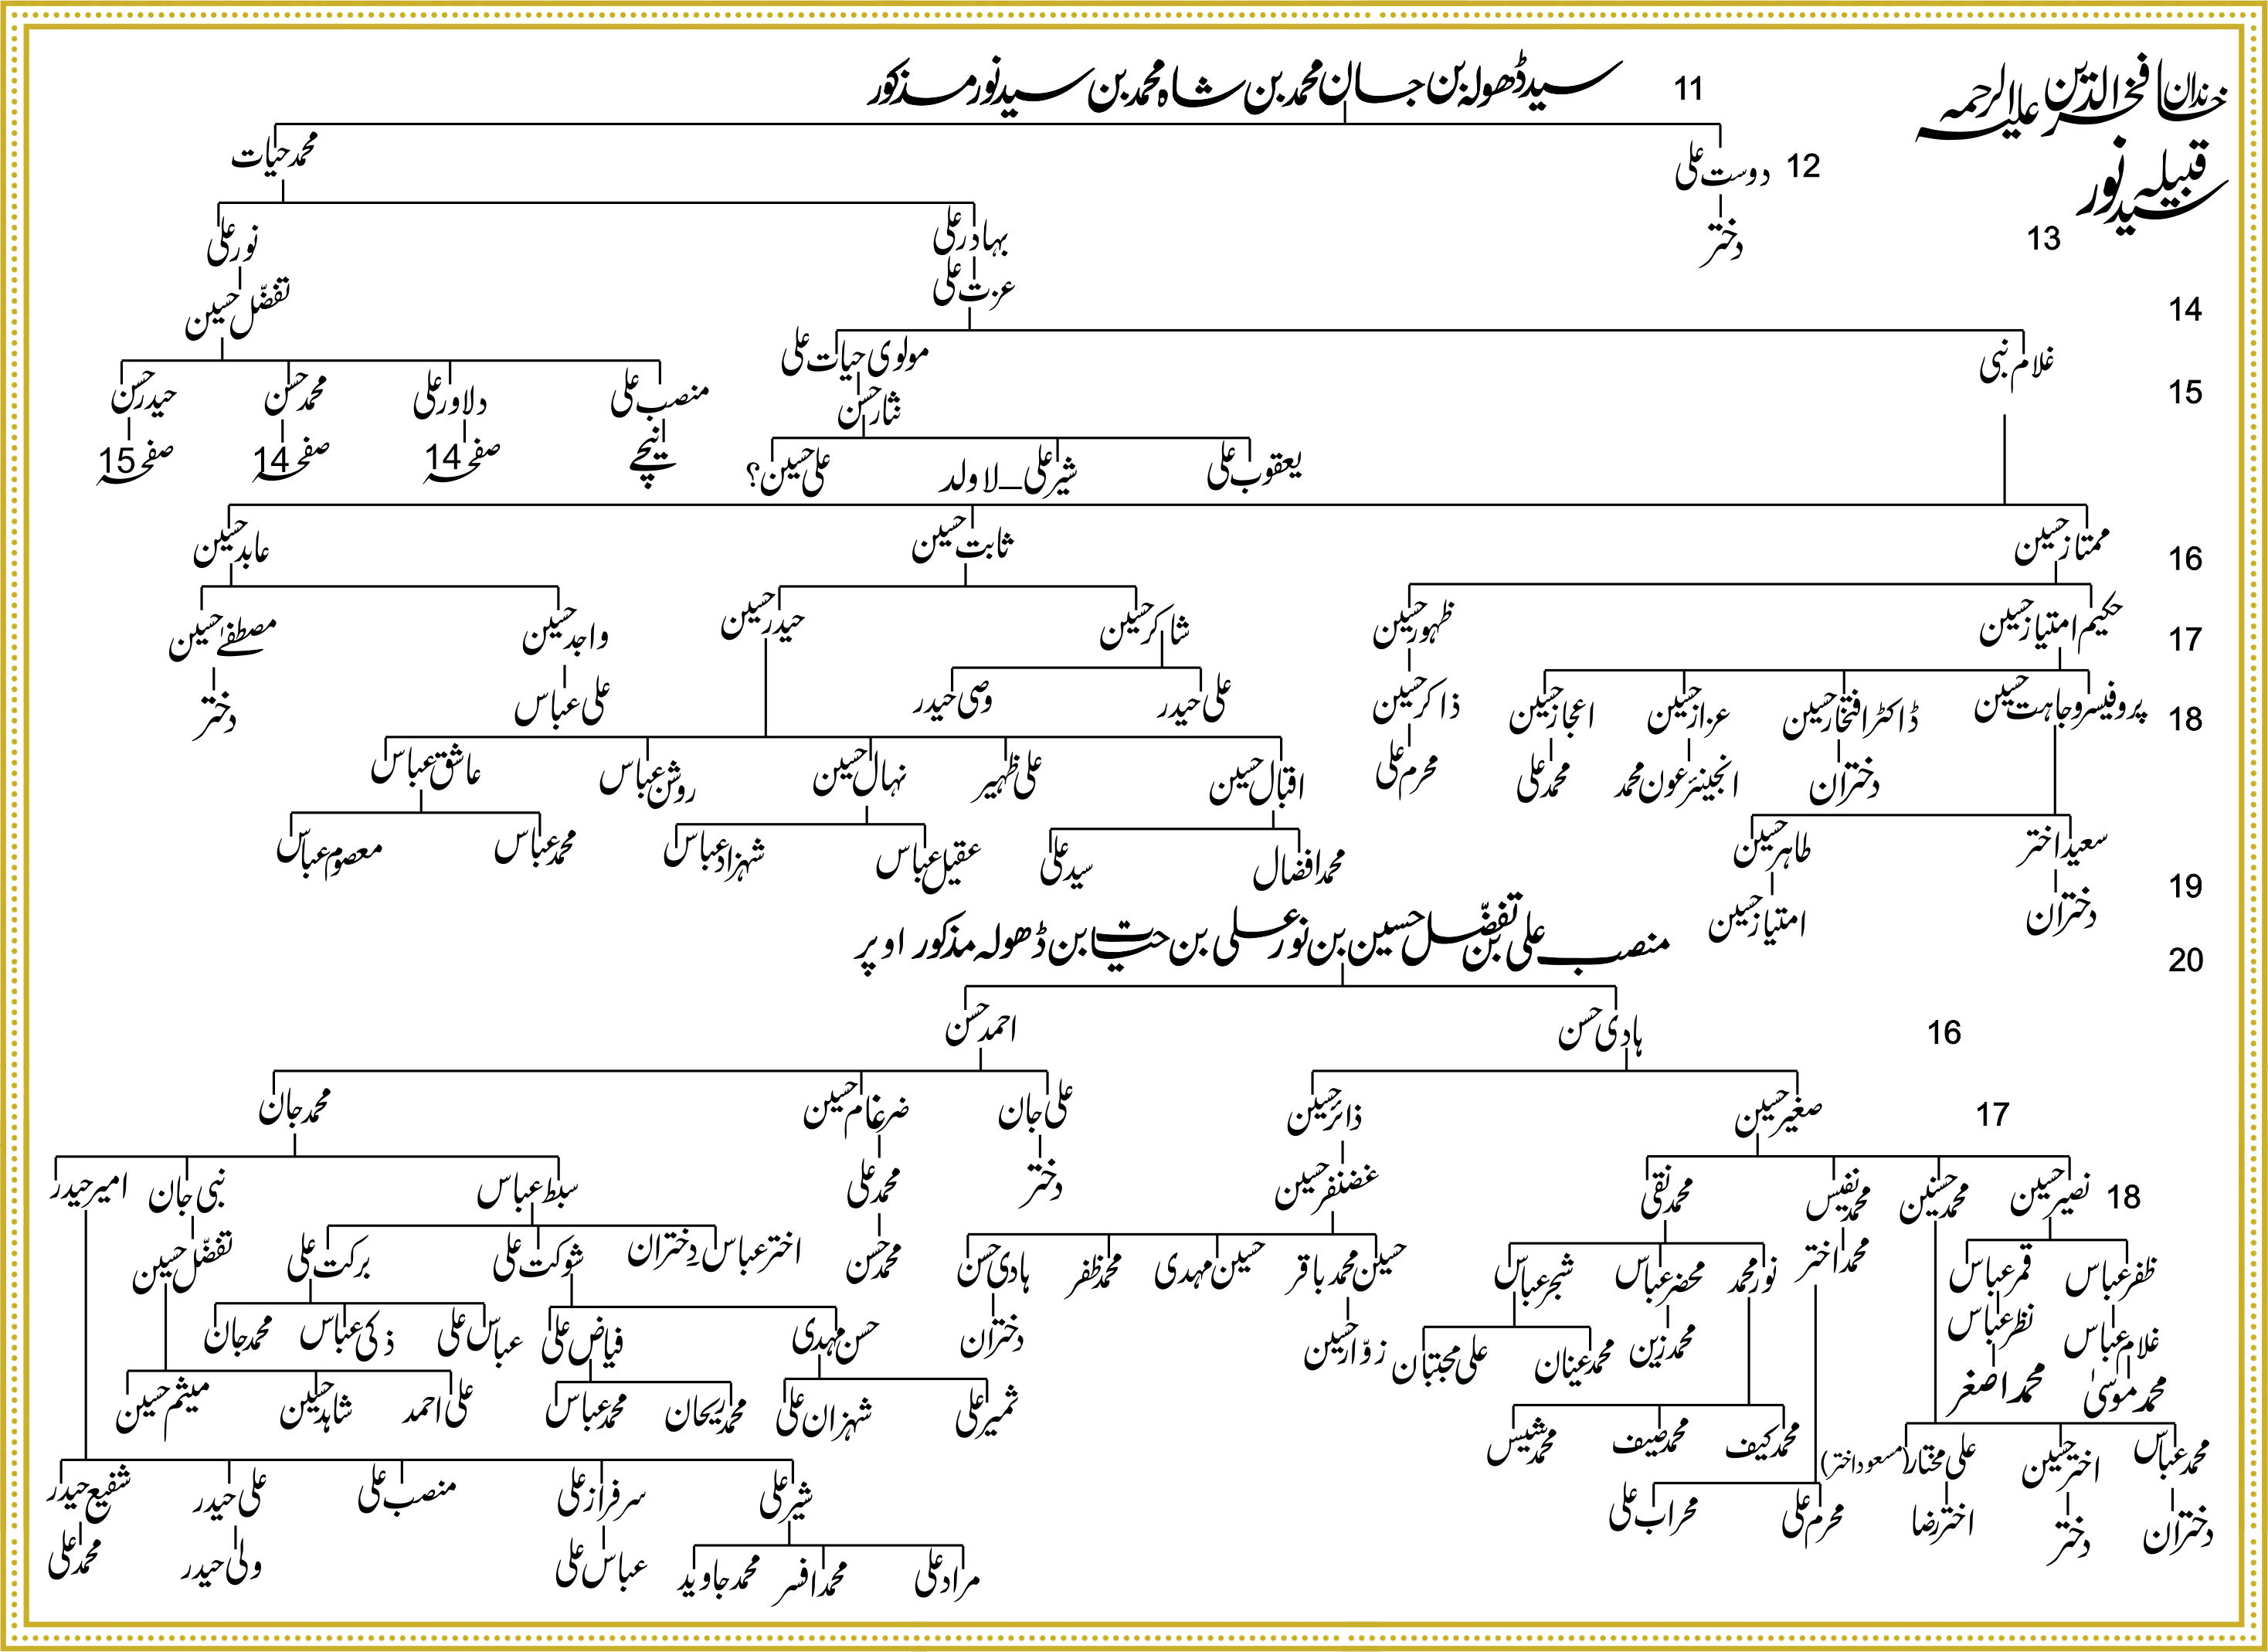 خاندان فخرالدین علیہ الرحمہ
قبیلہ سید نور
11 سید ڈھولہ بن جان محمد بن شاہ محمد بن سید نور مذکور
12 دوست علی محمد حیات
13 دختر بہادر علی نور علی
عزت علی تفضّل حسین
14
غلام نبی مولوی حیات علی
15 نثار حسن منصب علی دلاور علی محمد حسن حیدر حسن
یعقوب علی شیر علی_لاولد علی حسین؟ نیچے صفحہ 14 صفحہ 14 صفحہ 15
16 ممتاز حسین ثابت حسین عابد حسین
17 حکیم امتیاز حسین ظہور حسین شاکر حسین حیدر حسین واجد حسین مصطفےٰ حسین
18 پروفیسر وجاہت حسین ڈاکٹر افتخار حسین عزاز حسین اعجاز حسین ذاکر حسین علی حیدر وصی حیدر علی عباس دختر
دختران انجینئر عون محمد محمد علی محرم علی اقبال حسین علی ظہیر نہال حسین روشن عباس عاشق عباس
سعید اختر طاہر حسین محمد افضال سید علی عقیل عباس شہزاد عباس محمد عباس معصوم عباس
19
دختران امتیاز حسین
20 منصب علی بن تفضّل حسین بن نور علی بن حیات بن ڈھولہ مذکور اوپر
16 ہادی حسن احمد حسن
17 صغیر حسین ذائر حسین علی جان ضرغام حسین محمد جان
18 نصیر حسین محمد حسنین محمد نفیس محمد نقی غضنفر حسین دختر محمد علی سبط عباس نبی جان امیر حیدر
ظفر عباس قمر عباس محمد اختر نور محمد محضر عباس شجر عباس حسین محمد باقر حسین مہدی محمد ظفر ہادی حسن محمد حسن اختر عباس۔دختران شوکت علی برکت علی تفضّل حسین
غلام عباس نظر عباس محمد زین محمد عینان علی مجتبان زوّار حسین دختران حسن مہدی فیاض علی عباس علی ذکی عباس محمد جان
محمد موسیٰ محمد اصغر محمد کیف محمد ضیف محمد شیس ثمیر علی شہزان علی محمد ریحان محمد عباس علی احمد شاہد حسین میثم حسین
محمد عباس اختر حسین علی مختار (مسعود اختر) شیر علی سرفراز علی منصب علی علی حیدر شفیع حیدر
دختران دختر اختر رضا محرم علی محراب علی مراد علی محمد افسر محمد جاوید عباس علی ولی حیدر محمد علی